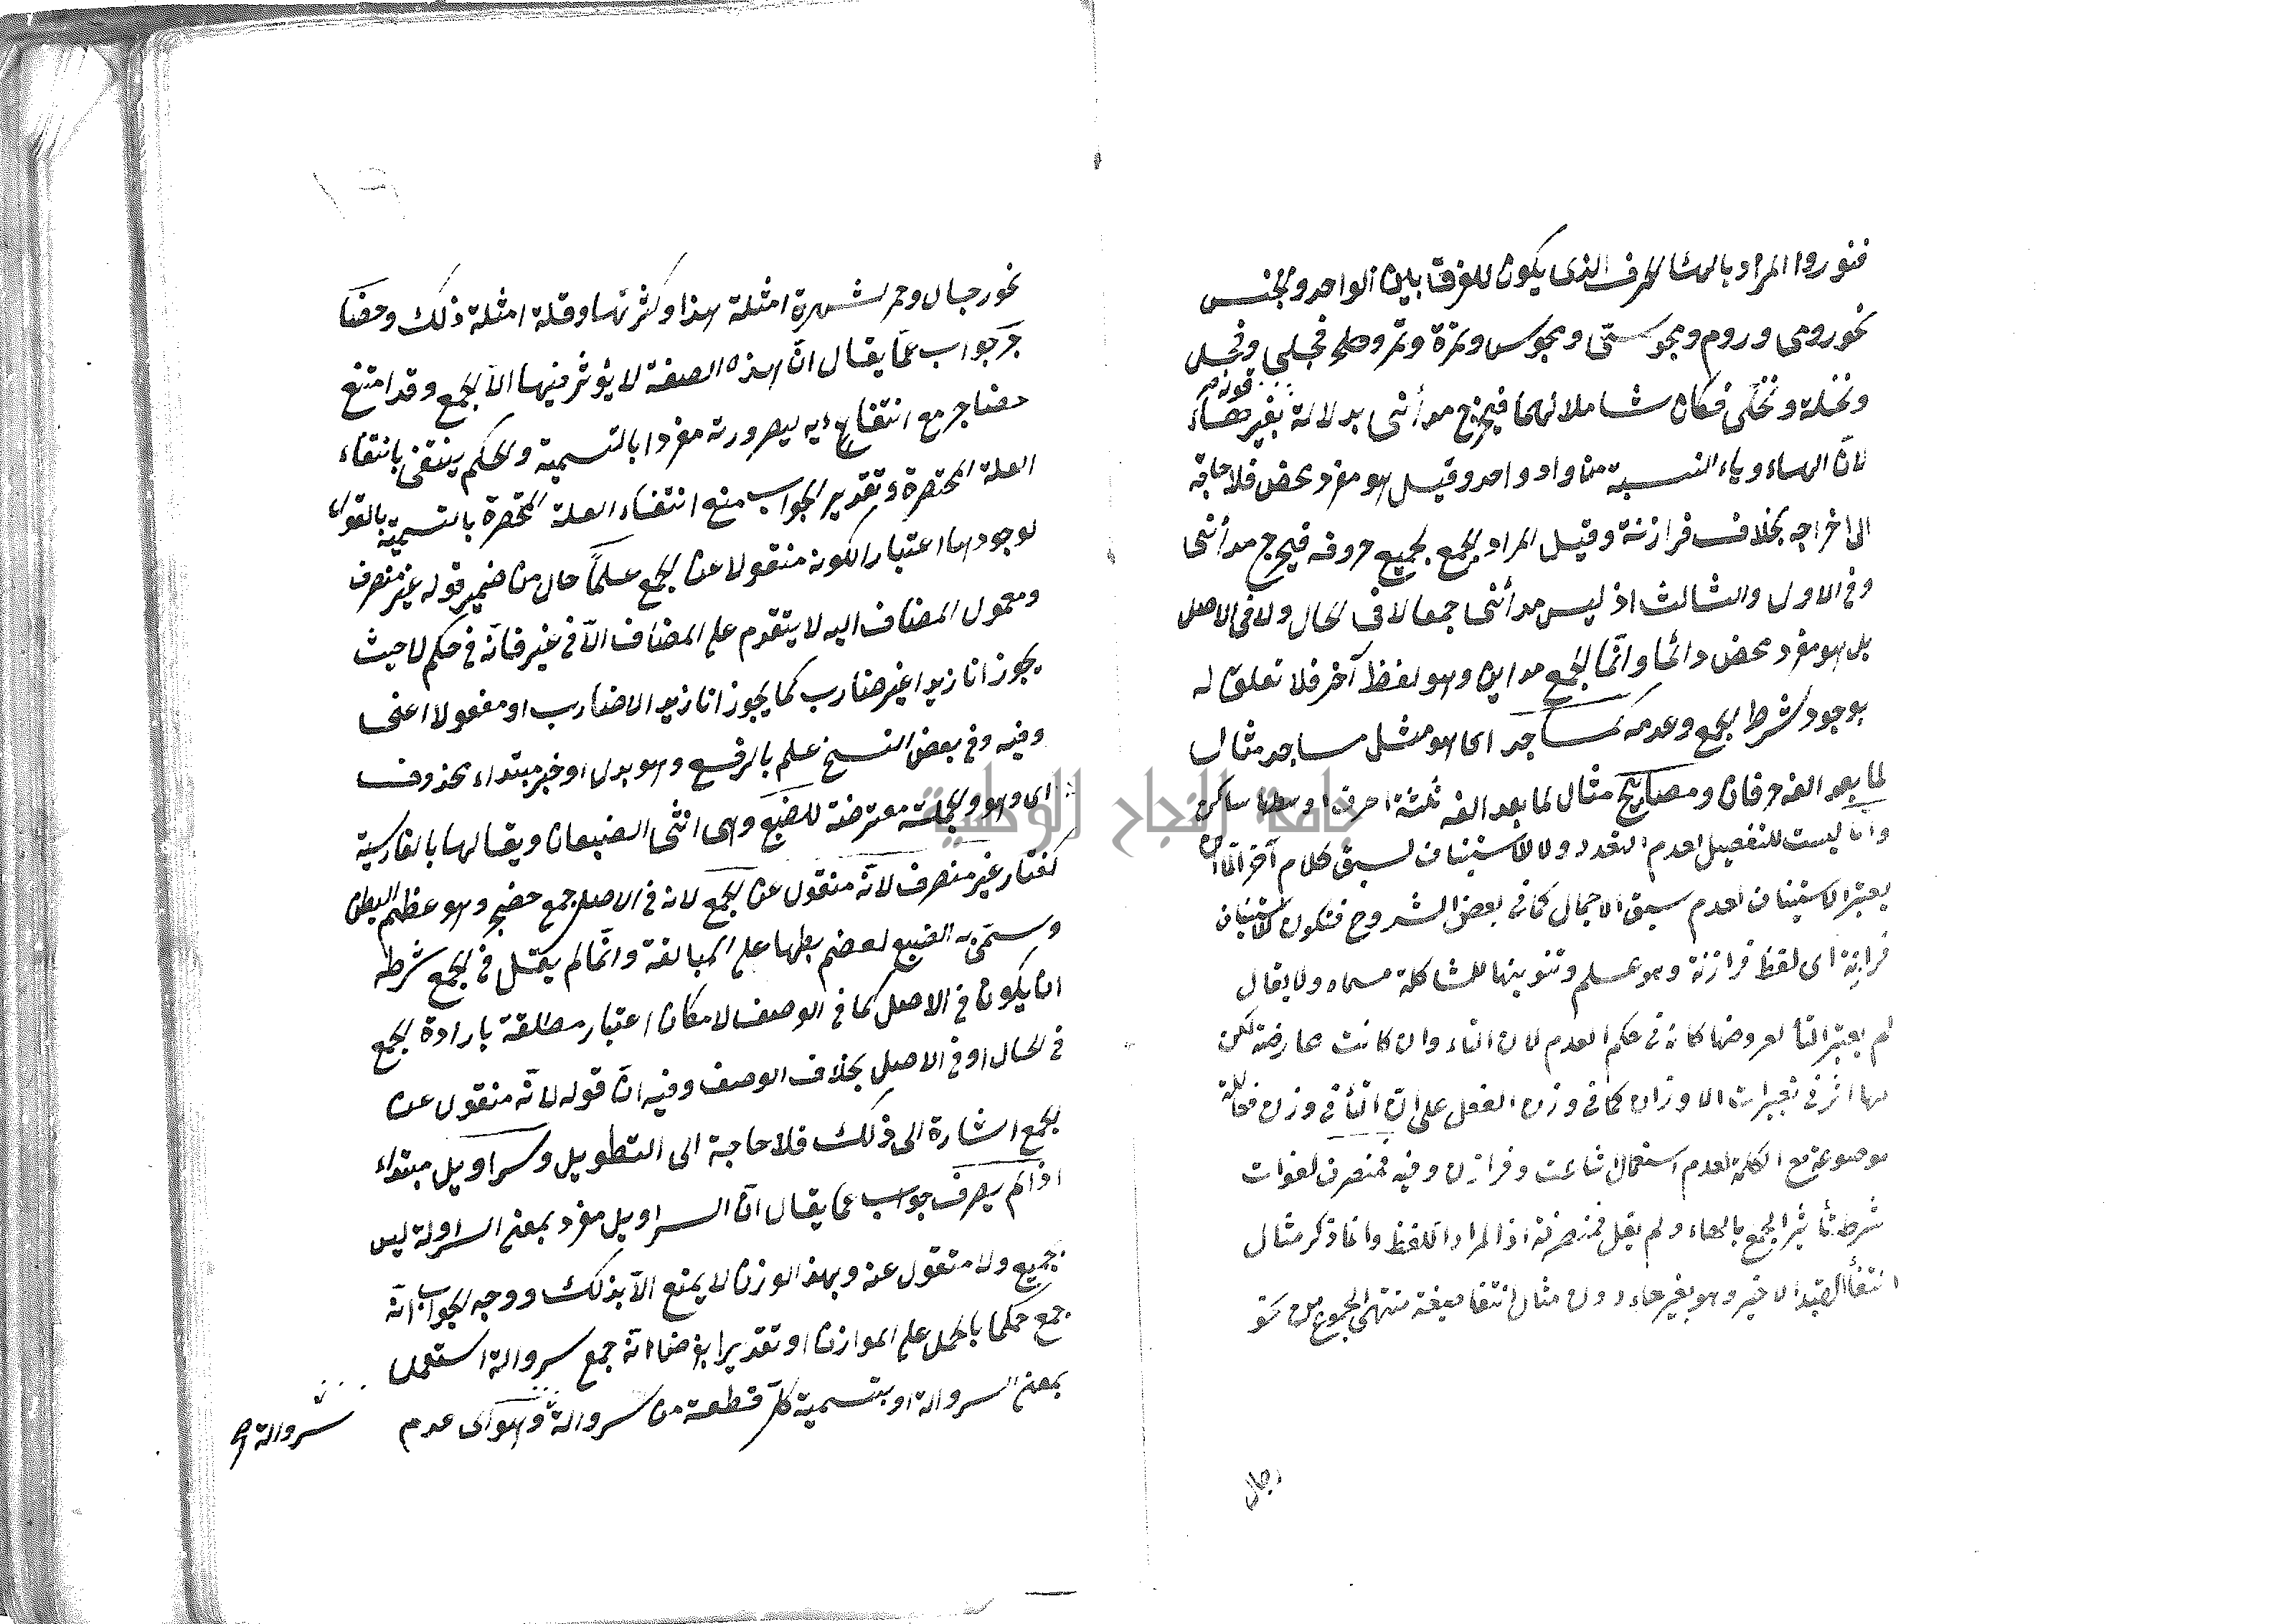 المراد بالهاء الحرف الذى يكون للفرق بين الواحد والجنس
نحو رومى وروم ومجوسى ومجوس وتمرة وتمر وفجل
ونخلة فكان شاملا لهما فيخرج مدائنى بدلالة بغير هاء
لان الهاء وياء النسبة من واد واحد وقيل هو مفرد محض فلا حاجة
الى اخراجه بخلاف فرازنة وقيل المراد الجمع بجميع حروفه فيخرج مدائنى
وفى الاول والثالث اذ ليس مدائنى جمعا لا فى الحال ولا فى الاصل
بل هو مفرد محض دائما وانما الجمع مداين وهو لفظ آخر فلا تعلق له
بوجود شرط الجمع وعدمه كمساجد اى هو مثل مساجد مثال
لما بعد الفه حرفان ومصابيح مثال لما بعد الفه ثلثة احرف اوسطها ساكن
واما ليست للتفصيل لعدم التعدد ولا للاستيناف لسبق كلام آخر
يعتبر الاستيناف لعدم سبق الاجمال كما فى بعض الشروح فتكون للاستيناف
فرازنة اى لفظ فرازنة وهو علم وتنوينها للمشاكلة ولا يقال
لم يعتبر التأ لعروضها كانه فى حكم العدم لان التاء وان كانت عارضة لكن
لها اثر فى تغييرات الاوزان كما فى وزن الفعل على ان التأ فى وزن
موضوعة مع الكلمة لعدم استعمال وفرازن وفيه فمنصرف لفوات
شرط تأثير الجمع بالهاء ولم يقل فمنصرفة اذ المراد اللفظ وانما ذكر مثال
انتفأ القيد الاخير وهو بغير هاء دون مثال انتفا صيغة منتهى الجموع من نحو
رجال
نحو رجال وحمر لشهرة امثلة هذا وكثرتها وقلة امثلة ذلك وحضا
جر جواب عما يقال ان هذه الصفة لا يؤثر فيها الا الجمع وقد امتنع
حضاجر مع انتفاء لصيرورته مفردا بالتسمية والحكم ينتفى بانتفاء
العلة المختصرة وتقدير الجواب منع انتفاء العلة بالتسمية بالقول
لوجودها اعتبارا لكونه منقولا عن الجمع علما حال من ضمير قوله غير منصرف
ومعمول المضاف اليه لا يتقدم على المضاف الا فى غير فانه فى حكم لا حيث
يجوز انا زيدا غير ضارب كما يجوز انا زيدا لا ضارب او مفعولا اعنى
وفيه وفى بعض النسخ علم بالرفع وهو بدل او خبر مبتداء محذوف
اى وهو والجملة معترضة للضبع وهى انثى الضبعان ويقال لها بالفارسية
كفتار غير منصرف لانه منقول عن الجمع لانه فى الاصل جمع حضجر وهو عظيم البطن
وسمى به الضبع لعظم بطنها على المبالغة وانما لم يقل فى الجمع شرطه
ان يكون فى الاصل كما فى الوصف لامكان اعتبار مطلقه بارادة الجمع
فى الحال او فى الاصل بخلاف الوصف وفيه ان قوله لانه منقول عن
الجمع اشارة الى ذلك فلا حاجة الى التطويل وسراويل مبتداء
اذا لم يصرف جواب عما يقال ان السراويل مفرد بمعنى السراولة ليس
بجميع ولا منقول عنه وبهذ الوزن لا يمنع الا بذلك ووجه الجواب انه
جمع حكما بالحمل على الموازن او تقديرا بفرضنا انه جمع سروالة استعمل
بمعنى السروالة او بتسمية كل قطعة من سروالة وهو اى عدم
شروالة